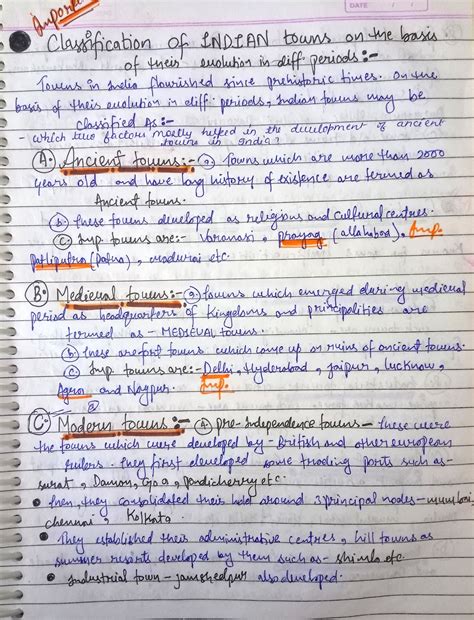 Important
DATE / /
Classification of INDIAN towns on the basis
of their evolution in diff. periods:-
Towns in India flourished since prehistoric times. On the
basis of their evolution in diff. periods, Indian towns may be
classified As:-
- Which two factors mostly helped in the development of ancient
towns in India?
A. Ancient towns:- a. Towns which are more than 2000
years old and have long history of existence are termed as
Ancient towns.
b. These towns developed as religious and Cultural centres.
c. Imp. towns are:- Varanasi, Prayag (allahabad), Imp.
Patliputra (Patna), madurai etc.
B. Medieval towns:- a towns which emerged during medieval
period as headquarters of Kingdoms and principalities are
termed as - MEDIEVAL towns.
b. these are fort towns which came up on ruins of ancient towns.
c. Imp towns are:- Delhi, Hyderabad, jaipur, lucknow,
Agra and Nagpur. Imp.
C. Modern towns:- a. pre-Independence towns - These were
the towns which were developed by - British and other european
rulers. They first developed some trading ports such as -
surat, Daman, Goa, pondicherry etc.
Then, they consolidated their hold around 3 principal nodes - mumbai,
chennai, Kolkata.
They established their administrative centres, hill towns as
summer resorts developed by them such as - shimla etc
Industrial town - jamshedpur also developed.